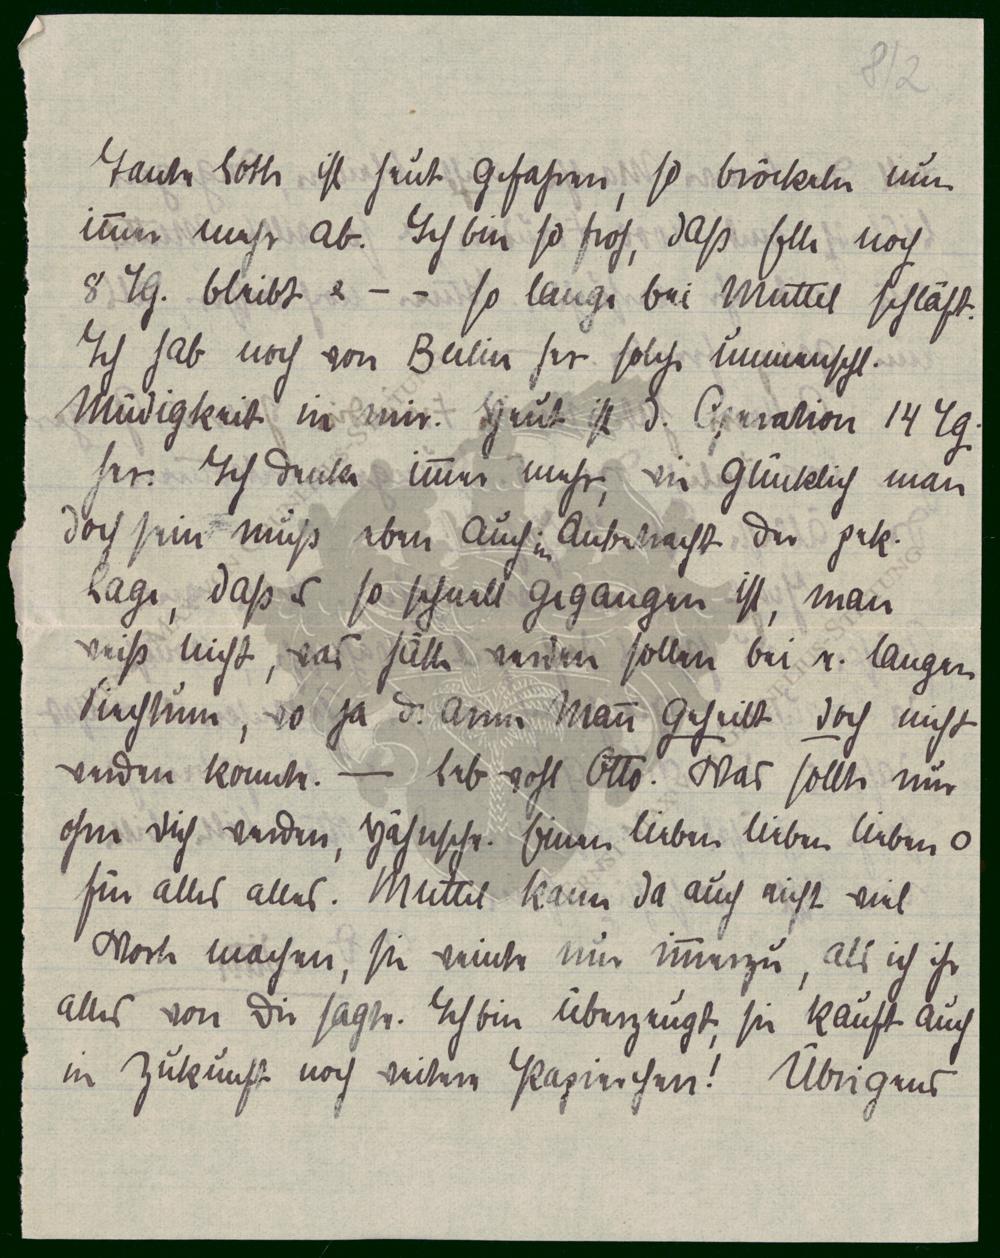 8/2
Tante Lotte ist heut gefahren, so bröckeln nun
im̅er mehr ab. Ich bin so froh, daß Elle noch
8 Tg. bleibt & – – so lange bei Muttel schläft.
Ich hab noch von Berlin her solche unmenschl.
Müdigkeit in mir. Heut ist d. Operation 14 Tg.
her. Ich denke im̅er mehr, wie glücklich man
doch sein muß eben auch in Anbetracht der pek.
Lage, daß es so schnell gegangen ist, man
weiß nicht, was hätte werden sollen bei e. langen
Siechtum, wo ja d. arme Man̅ geheilt doch nicht
werden konnte. — Leb wohl Otto. Was sollte nur
ohne Dich werden, Hähnsche. Einen lieben lieben lieben O
für alles alles. Muttel kann da auch nicht viel
Worte machen, sie weinte nur im̅erzu, als ich ihr
alles von Dir sagte. Ich bin überzeugt, sie kauft auch
in Zukunft noch weitere Papierchen! Übrigens